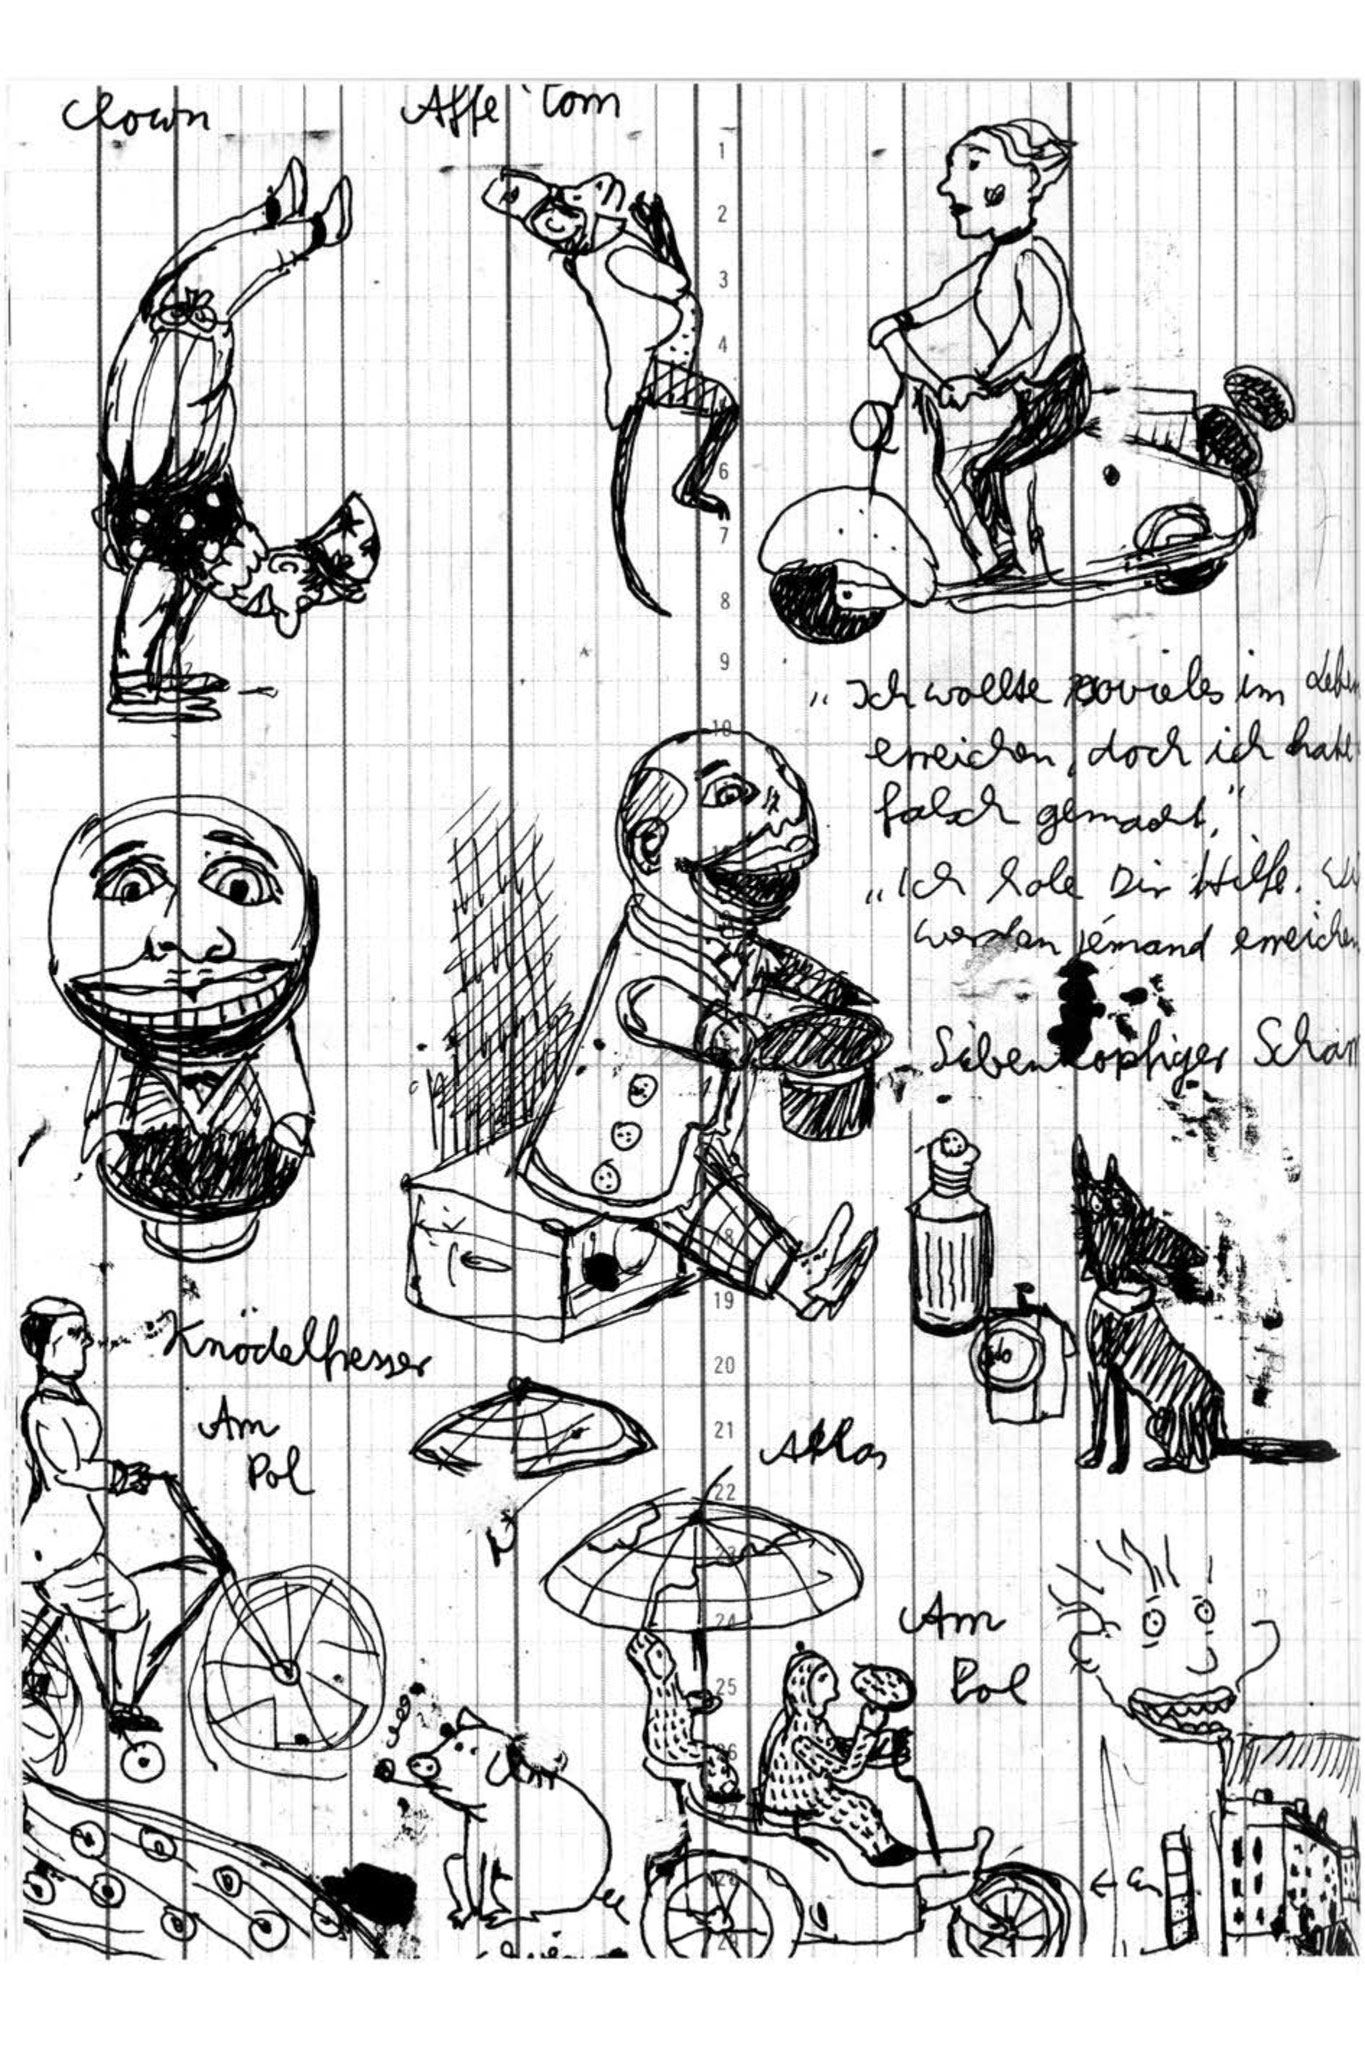 Clown
Affe Tom
1
2
3
4
6
7
8
9
10
„Ich wollte sovieles im Leben
erreichen, doch ich habe
falsch gemacht."
„Ich hole Dir Hilfe.
werden jemand erreichen
Siebenkopfiger
18
19
Knödelfresser
20
Am
Pol
21
Atlas
22
23
24
Am
Pol
25
26
27
28